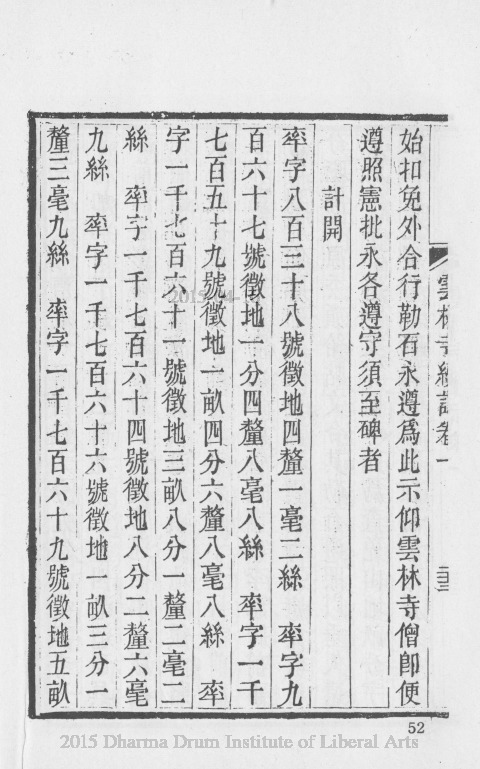 雲林寺續記卷一
始扣免外合行勒石永遵爲此示仰雲林寺僧卽便
遵照憲批永各遵守須至碑者
計開
率字八百三十八號徵地四釐一毫二絲 率字九
百六十七號徵地一分四釐八毫八絲 率字一千
七百五十九號徵地一畝四分六釐八毫八絲 率
字一千七百六十一號徵地三畝八分一釐二毫二
絲 率字一千七百六十四號徵地八分二釐六毫
九絲 率字一千七百六十六號徵地一畝三分一
釐三毫九絲 率字一千七百六十九號徵地五畝
52
2015 Dharma Drum Institute of Liberal Arts